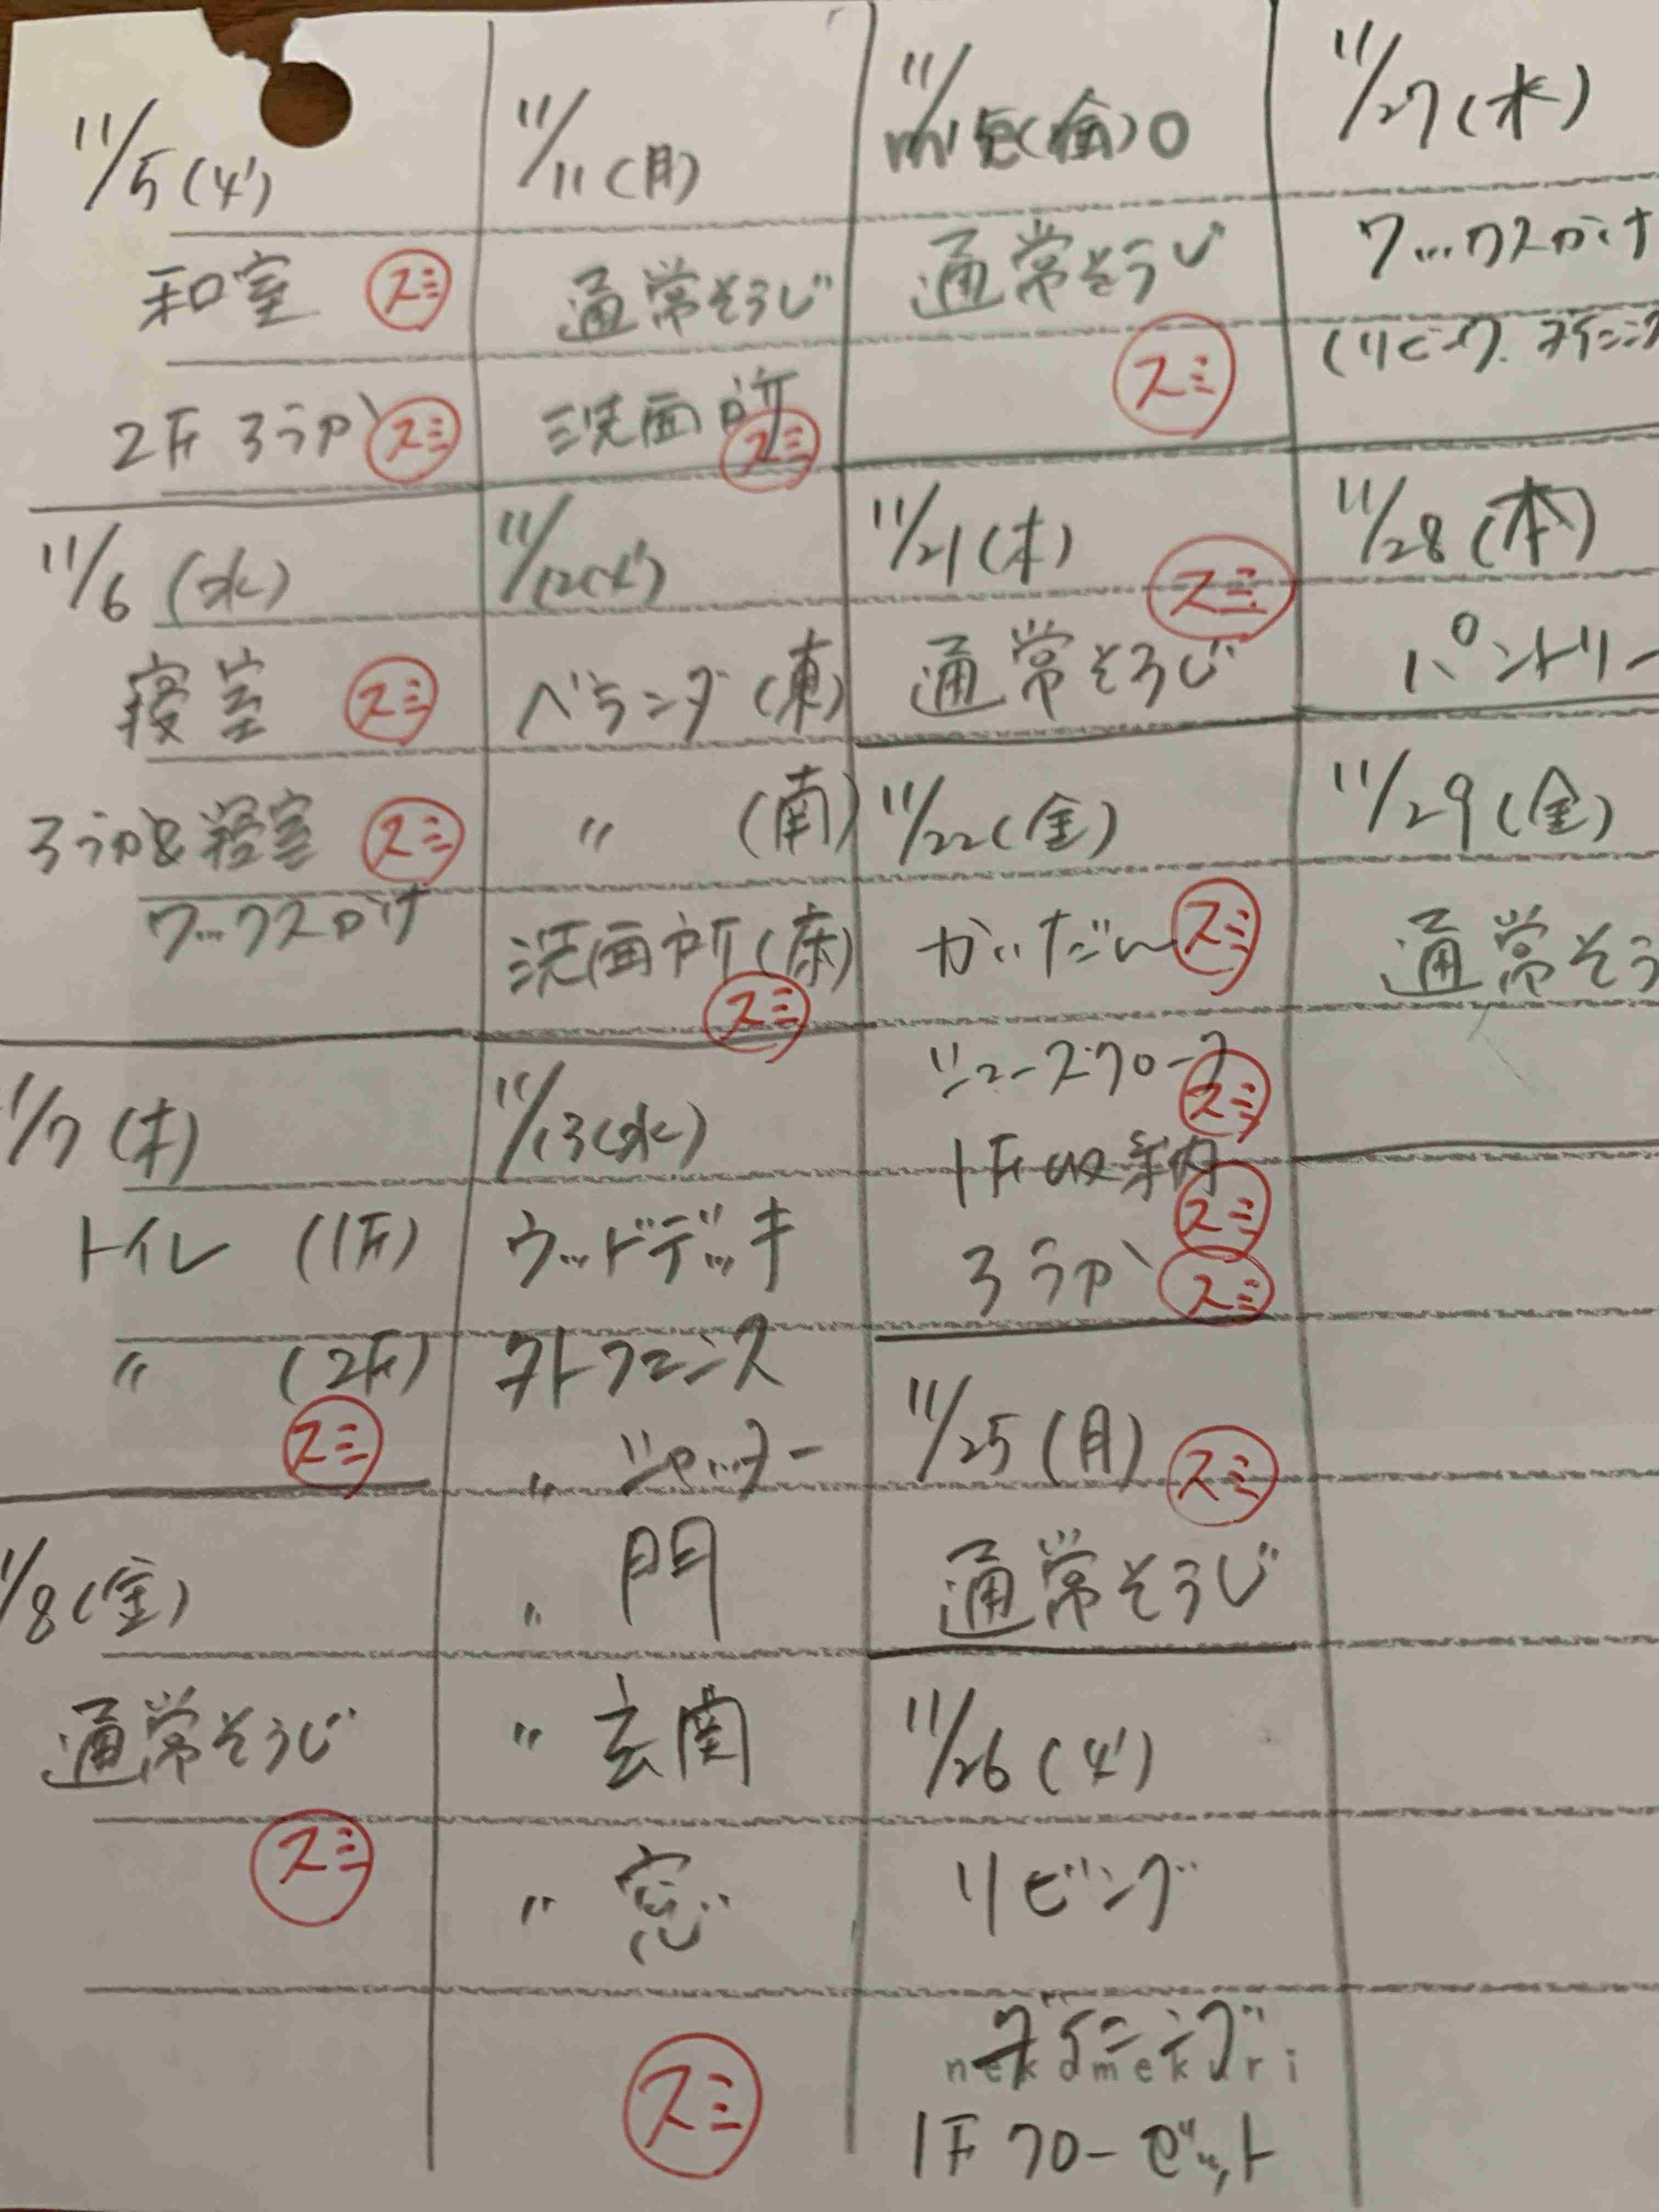 11/5(火)
和室 スミ
2F ろうか スミ
11/6(水)
寝室 スミ
ろうか&寝室 スミ
ワックスがけ
11/7(木)
トイレ (1F)
〃 (2F)
スミ
11/8(金)
通常そうじ
スミ
11/11(月)
通常そうじ
洗面所
スミ
11/12(火)
ベランダ(東)
〃 (南)
洗面所(床)
スミ
11/13(水)
ウッドデッキ
外フェンス
〃 シャッター
〃 門
〃 玄関
〃 窓
スミ
11/
(金)
通常そうじ
スミ
11/21(木)
スミ
通常そうじ
11/22(金)
かいだん スミ
シューズクローク
スミ
1F収納
スミ
ろうか スミ
11/25(月) スミ
通常そうじ
11/26(火)
リビング
ダイニング
nekomekuri
1Fクローゼット
11/27(水)
ワックスがけ
(リビング.ダイニング
11/28(木)
パントリー
11/29(金)
通常そう